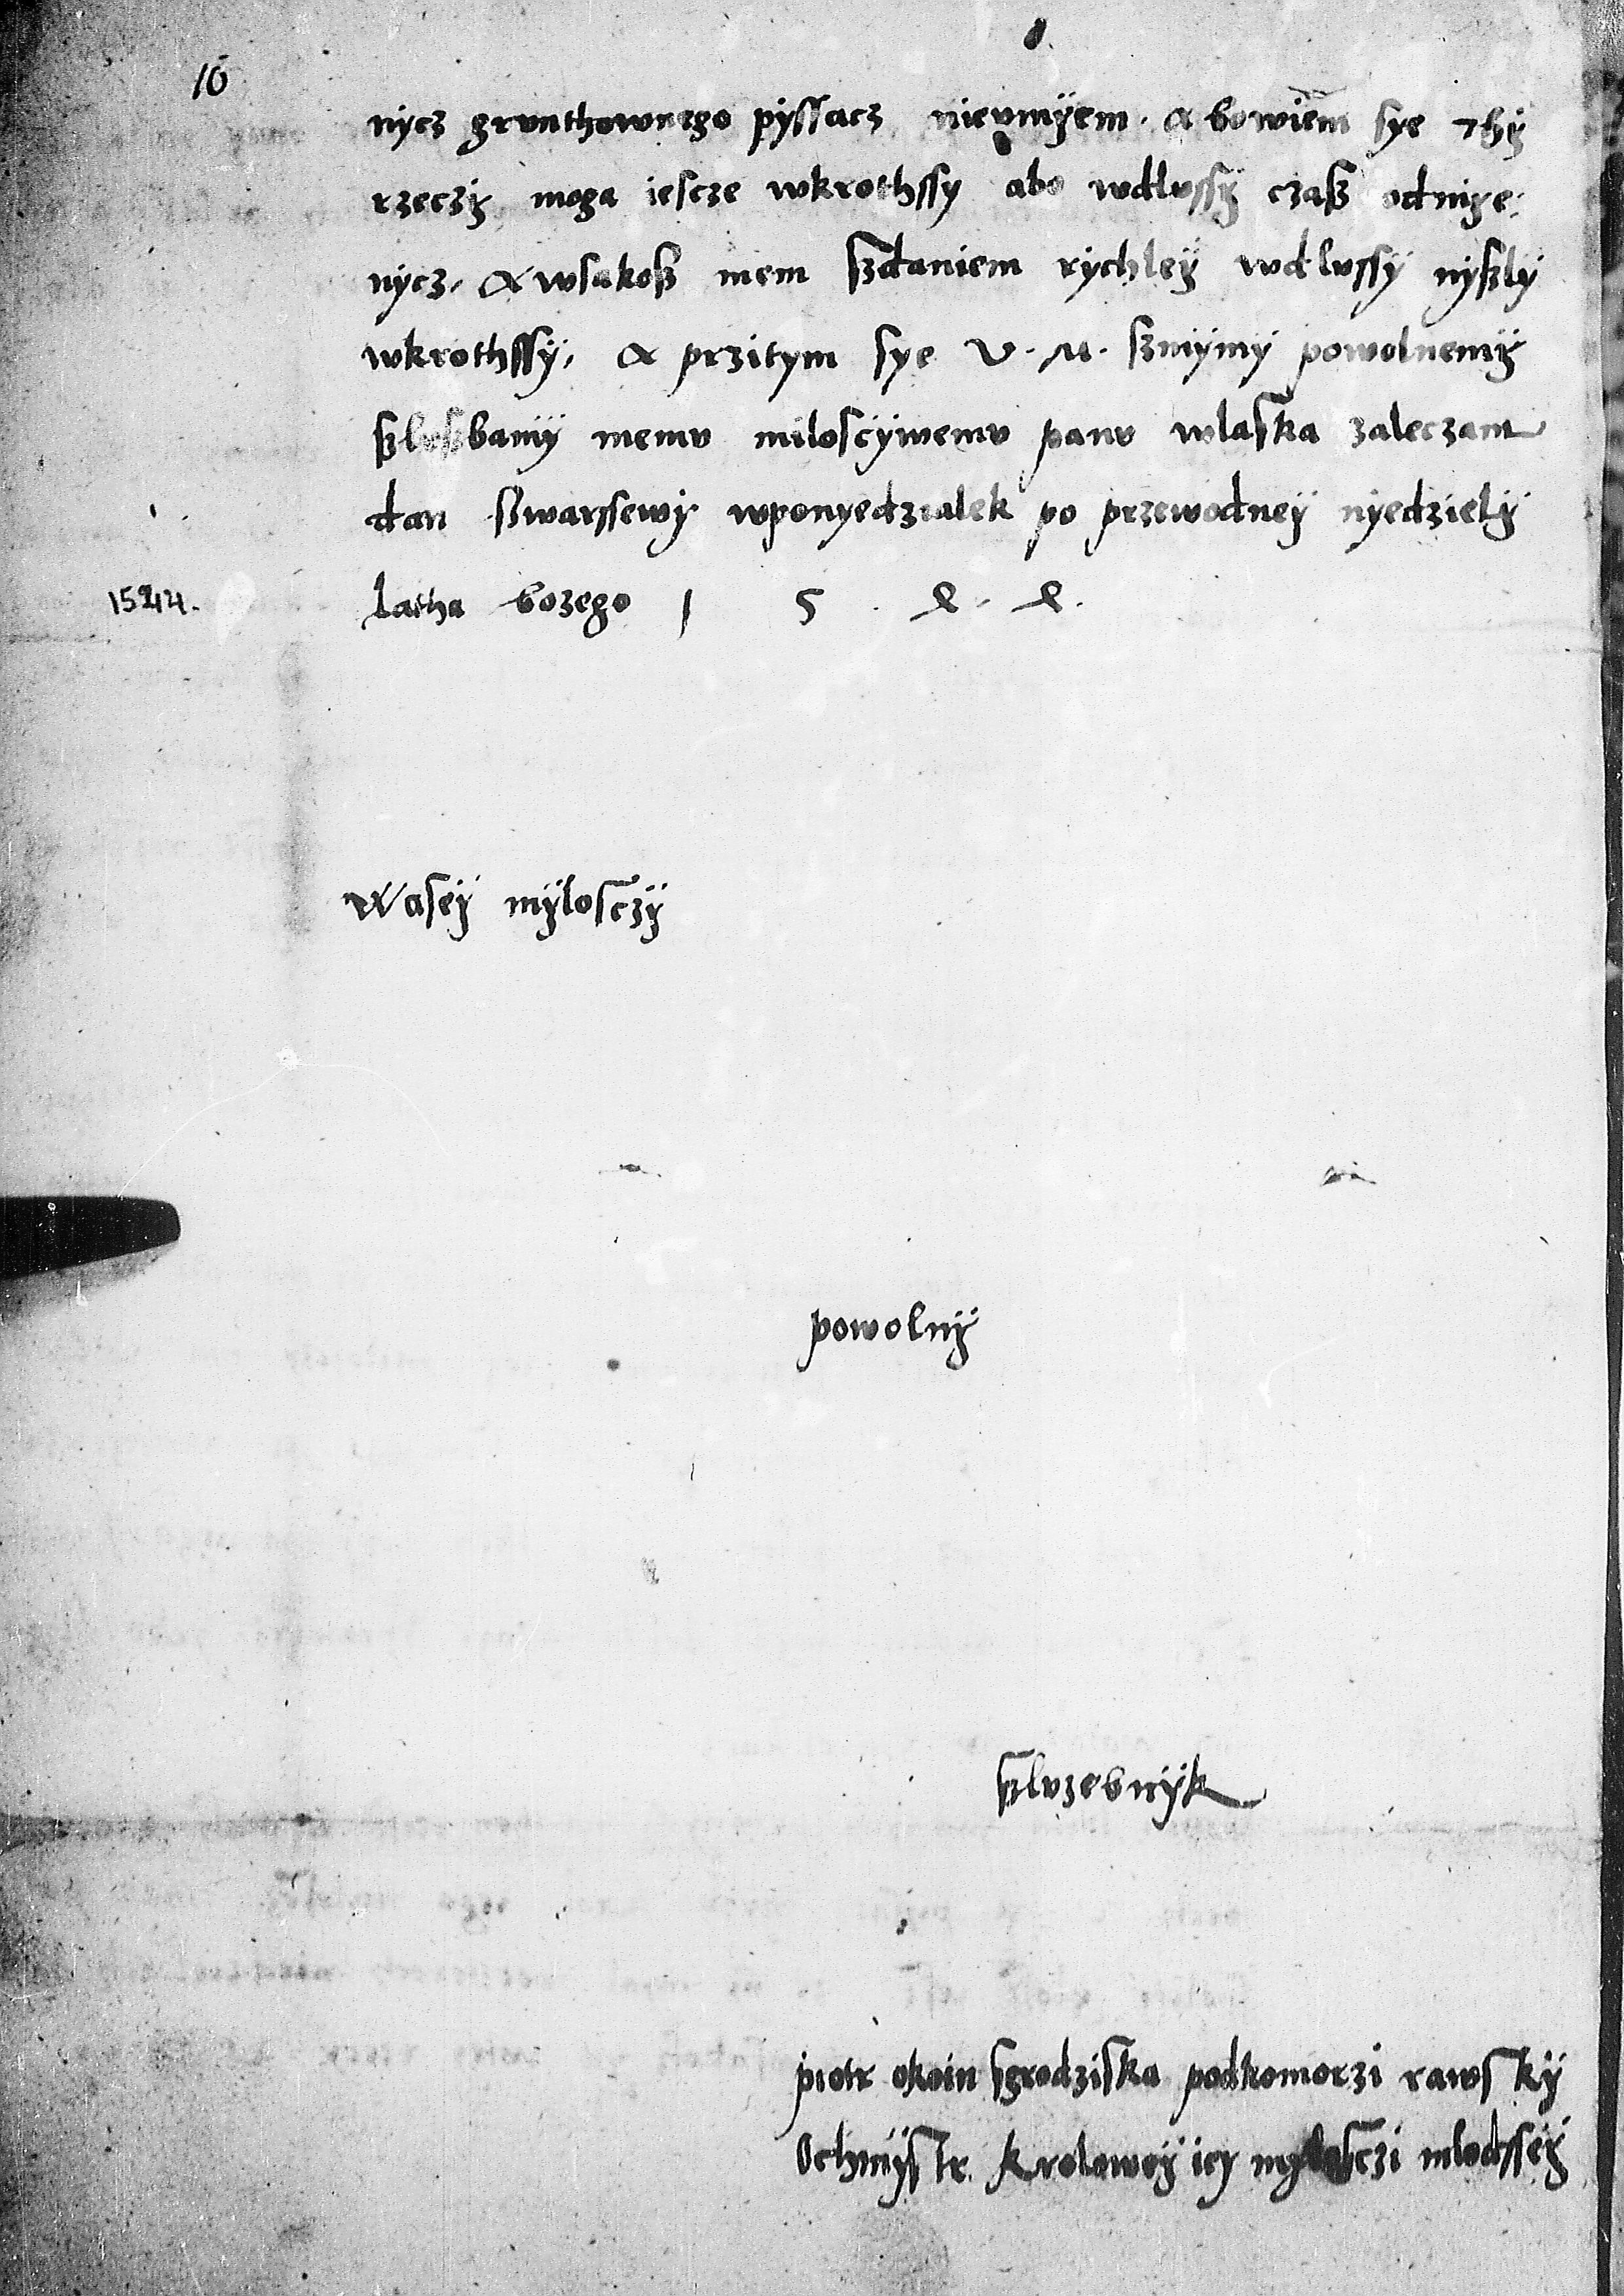 16
nycz grvnthownego pyssacz nievmyem. A bowiem sye thy
rzeczy moga iescze wkrothssy abo wdlvssy czasz odmye:
nycz, A wsakosz mem szdaniem rychley wdlvssy nyszly
wkrothssy, A przitym sye V. M. szmymy powolnemy
szlvszbamy memv miloscywemv panv wlaska zaleczam
dan szwarssewy wponyedzialek po przewodney nyedziely
1544.
latha bozego 1 5 4. 4.
Wasey mylosczy
powolny
szlvzebnyk
piotr okvin sgrodziska podkomorzi rawsky
Ochmystr Krolowey iey mylosczi mlodssey